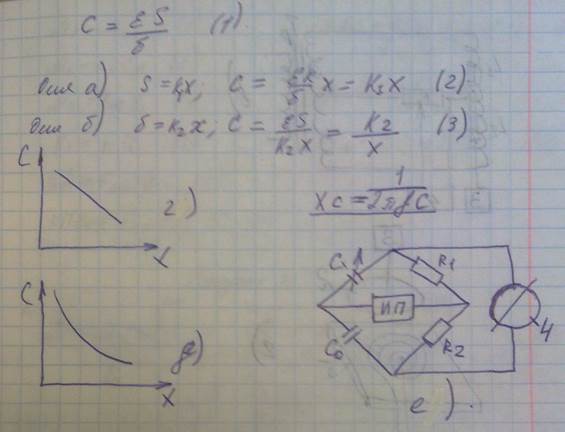 C = εS/δ (1).
для а) S = K₁X; C = εK/δ X = K₁X (2)
для б) δ = K₂X; C = εS/K₂X = K2/X (3)
C
X
г)
Xc = 1/2πfC
C
X
д)
C₁
R1
ИП
C₀
R2
Ч
е).